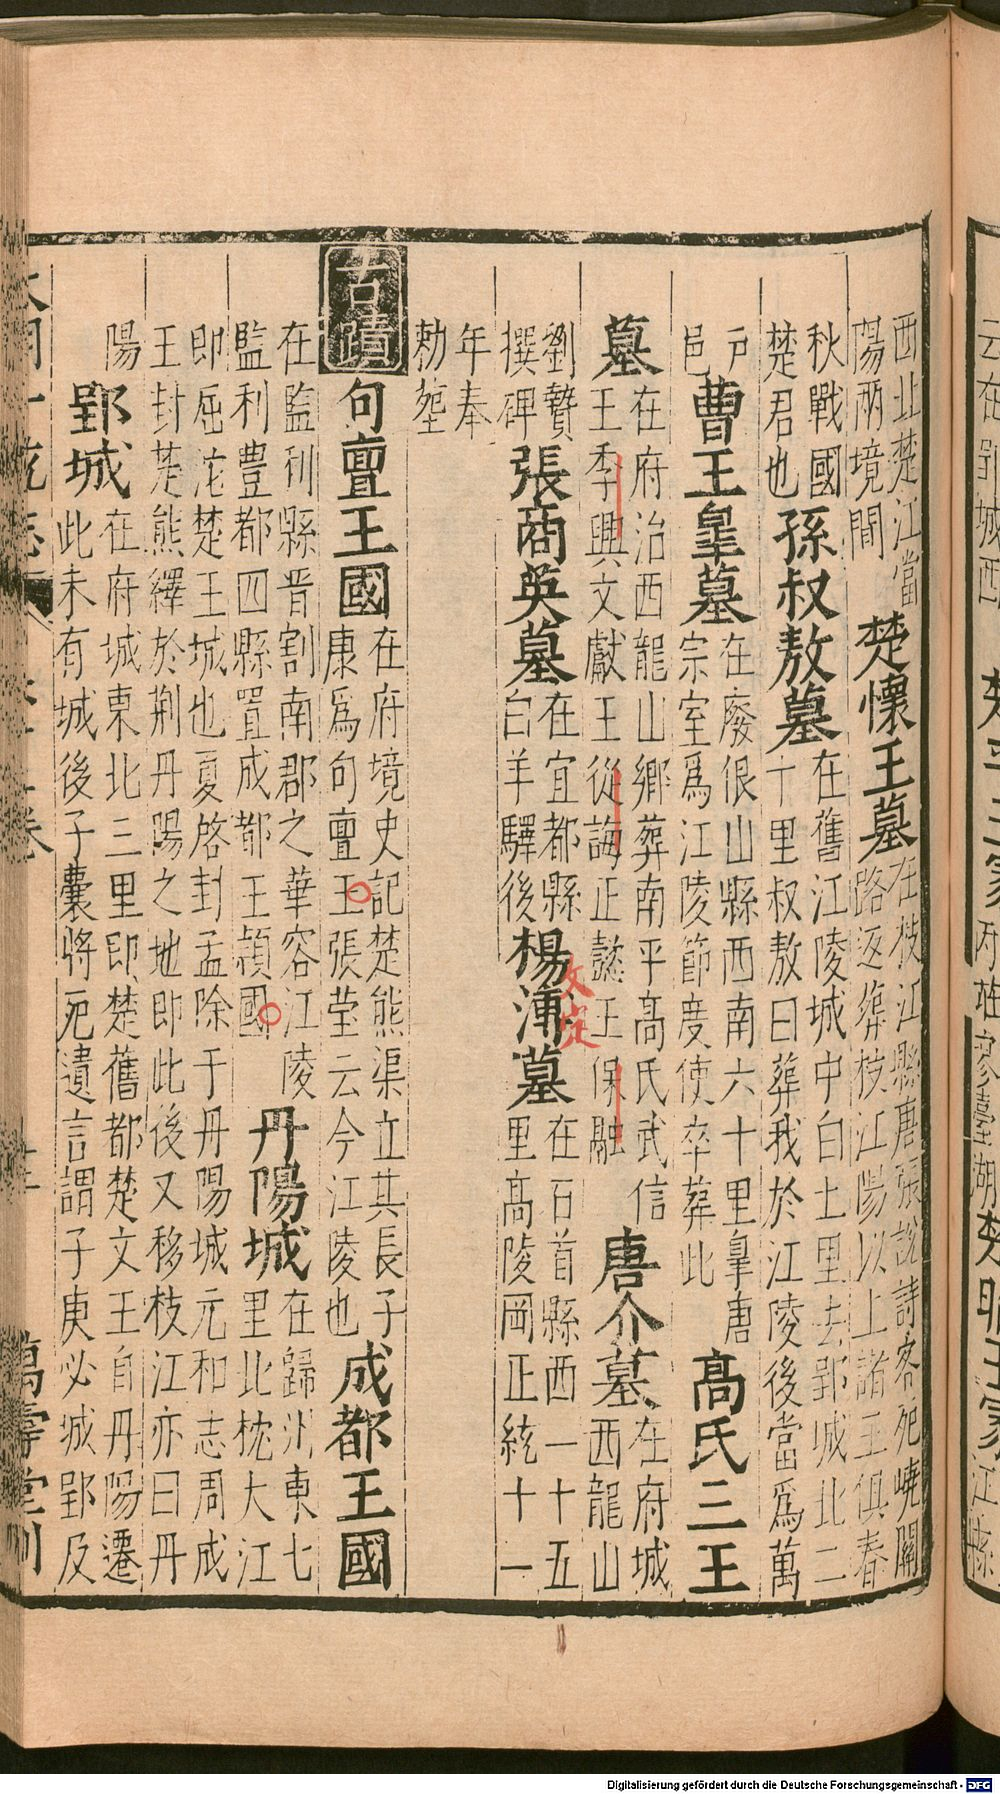 西北楚江當
陽兩境間
楚懷王墓
在枝江縣唐張說詩客死嶢關
路返葬枝江陽以上諸王俱春
秋戰國
楚君也
孫叔敖墓
在舊江陵城中白土里去郢城北二
十里叔敖曰葬我於江陵後當爲萬
戶
邑
曹王皐墓
在廢佷山縣西南六十里皐唐
宗室爲江陵節度使卒葬此
高氏三王
墓
在府治西龍山鄉葬南平高氏武信
王季興文獻王從誨正懿王保融
唐介墓
在府城
西龍山
劉贄
撰碑
張商英墓
在宜都縣
白羊驛後
楊溥墓
文定
在石首縣西一十五
里高陵岡正統十一
年奉
勑塟
古蹟
句亶王國
在府境史記楚熊渠立其長子
康爲句亶王張瑩云今江陵也
成都王國
在監利縣晋割南郡之華容江陵
監利豊都四縣置成都王穎國
丹陽城
在歸州東七
里北枕大江
即屈沱楚王城也夏啓封孟除于丹陽城元和志周成
王封楚熊繹於荆丹陽之地即此後又移枝江亦曰丹
陽
郢城
在府城東北三里即楚舊都楚文王自丹陽遷
此未有城後子囊將死遺言謂子庚必城郢及
大明一統志
萬壽堂刊
Digitalisierung gefördert durch die Deutsche Forschungsgemeinschaft - DFG